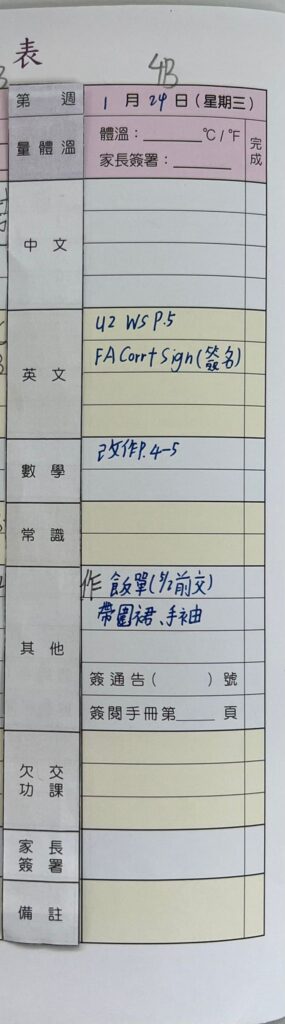 表
4B
第 週 1 月 24 日(星期三)
量體溫 體溫:________℃/℉ 完成
家長簽署:________
中文
英文 U2 WS P.5
FA Corr+Sign(簽名)
數學 改作P.4-5
常識
其他 作 飯單(5/2前交)
帶圍裙、手袖
簽通告( )號
簽閱手冊第_____頁
欠交功課
家長簽署
備註